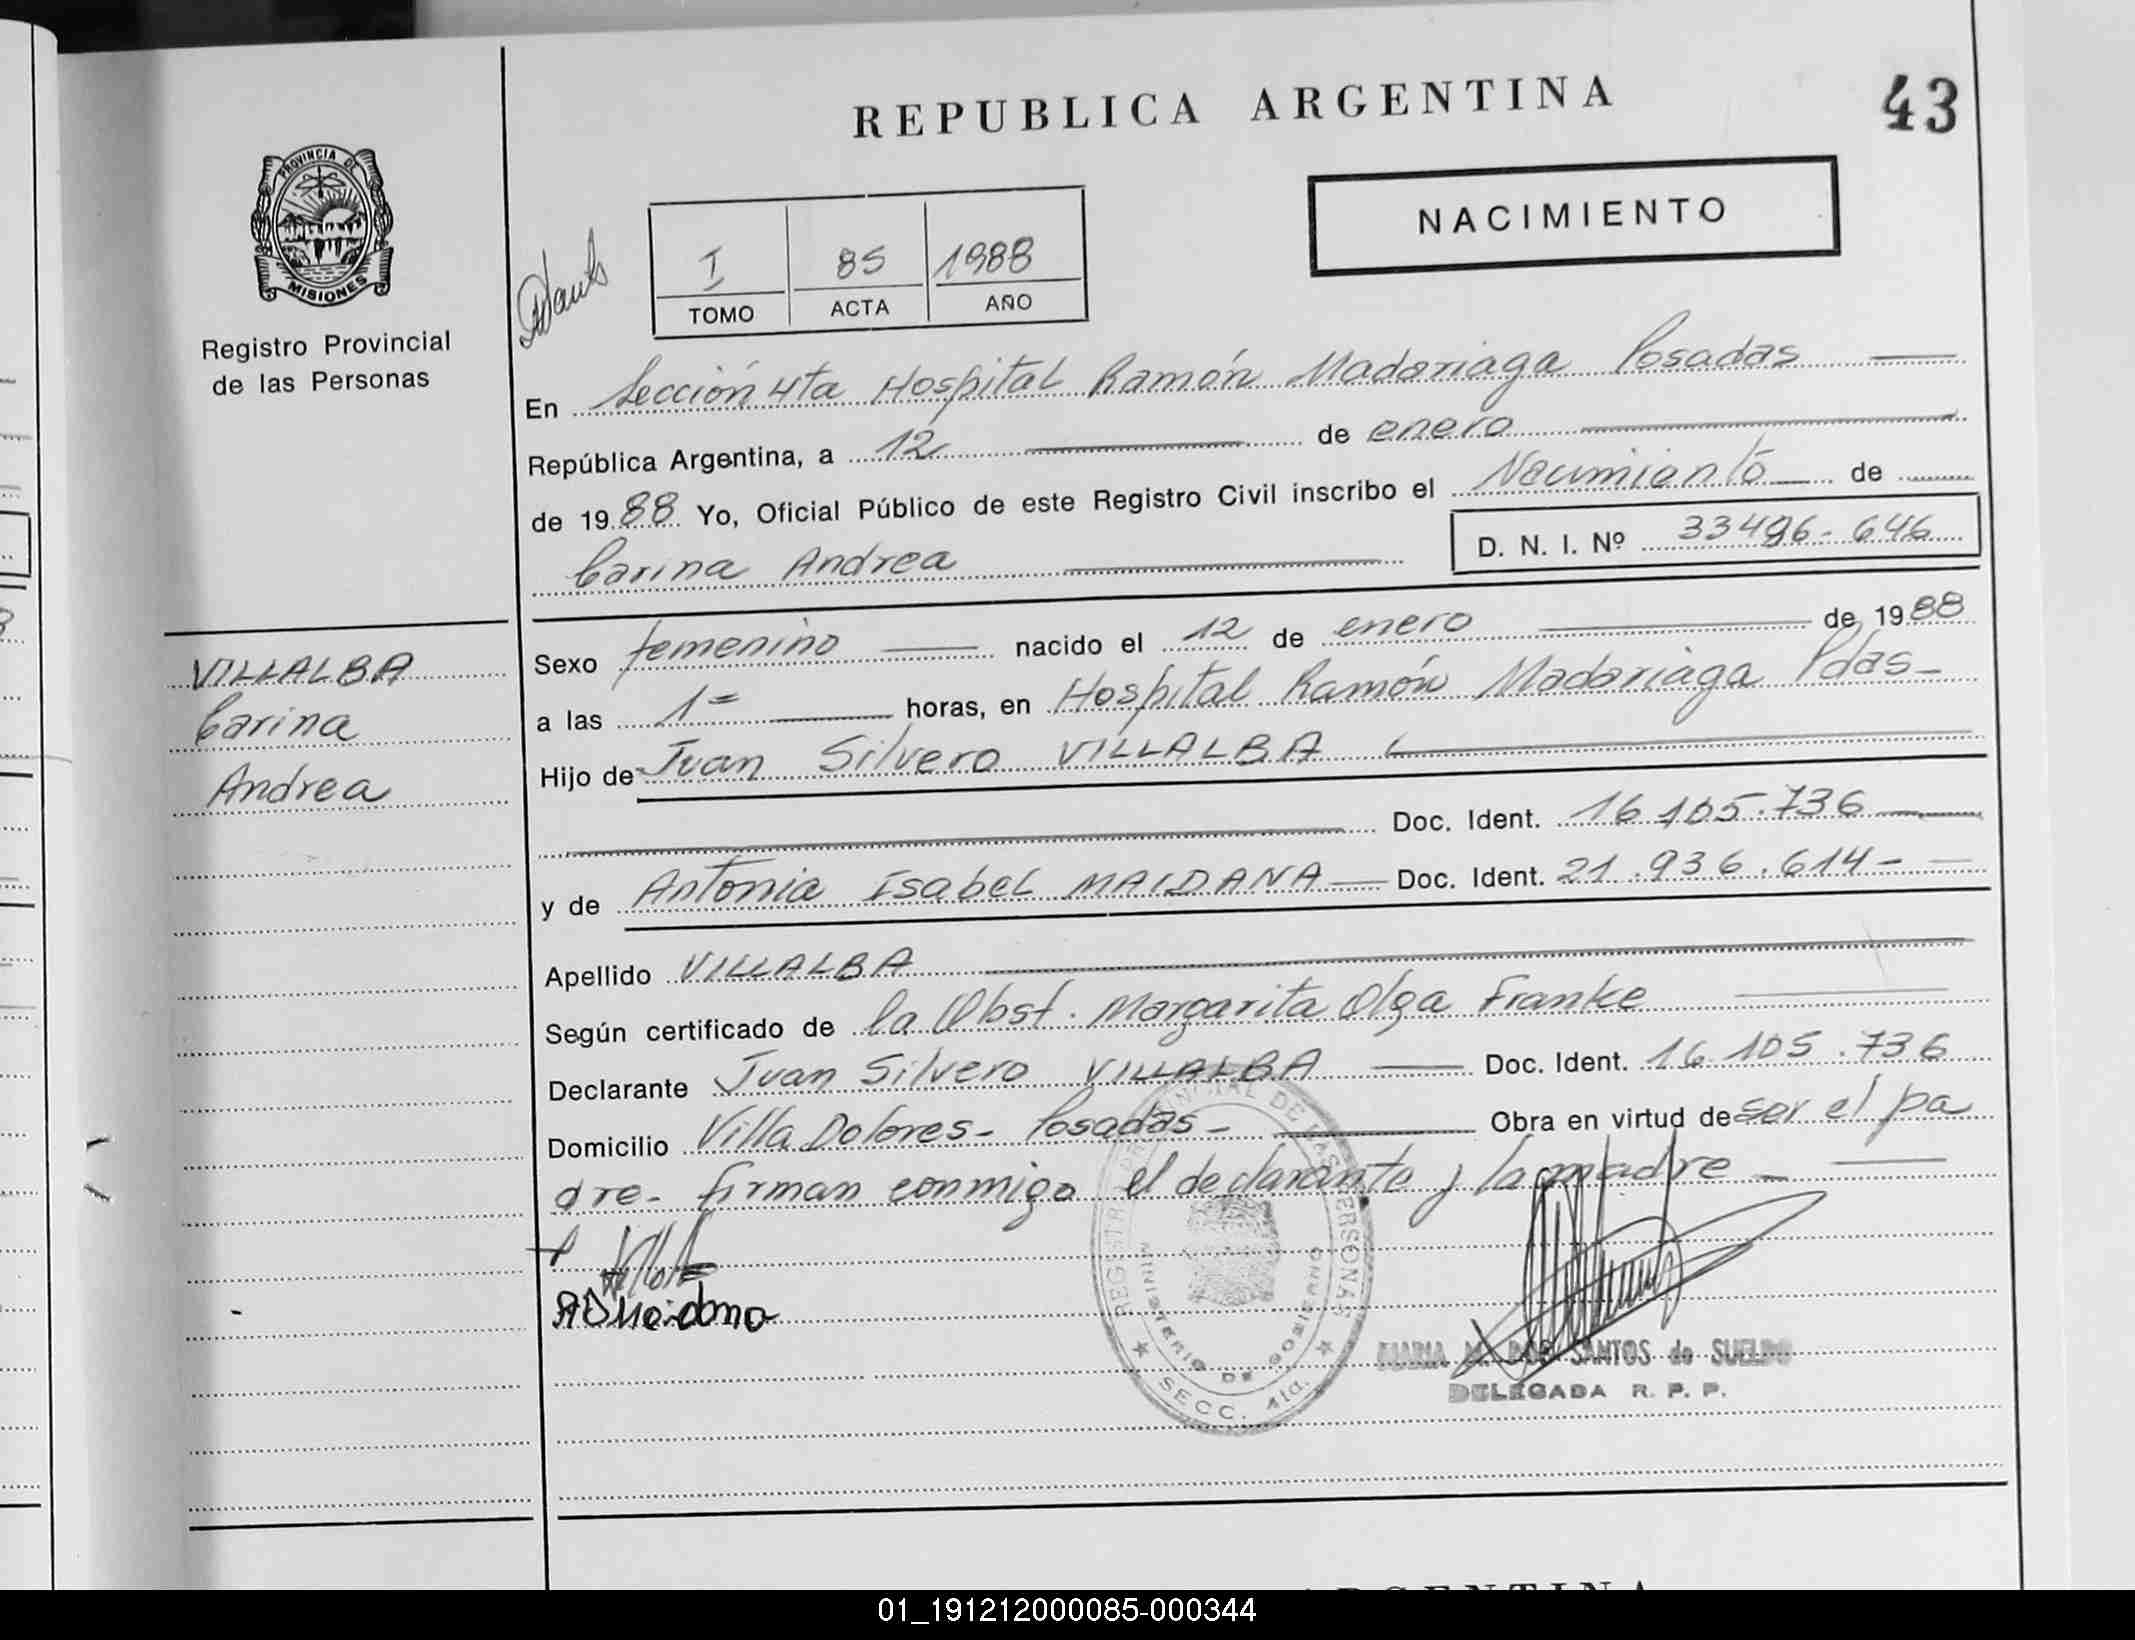 REPUBLICA ARGENTINA
43
NACIMIENTO
PROVINCIA DE
MISIONES
Registro Provincial
de las Personas
I 85 1988
TOMO ACTA AÑO
En Sección 4ta Hospital Ramón Madariaga Posadas
República Argentina, a 12 de enero
de 1988 Yo, Oficial Público de este Registro Civil inscribo el Nacimiento de
Carina Andrea D. N. I. Nº 33496-646
Sexo femenino nacido el 12 de enero de 1988
a las 1= horas, en Hospital Ramón Madariaga Pdas-
Hijo de Juan Silvero VILLALBA
Doc. Ident. 16.105.736
y de Antonia Isabel MAIDANA Doc. Ident. 21.936.614-
Apellido VILLALBA
Según certificado de la Obst. Margarita Olga Franke
Declarante Juan Silvero VILLALBA Doc. Ident. 16.105.736
Domicilio Villa Dolores- Posadas- Obra en virtud de ser el pa
dre- firman conmigo el declarante y la madre-
VILLALBA
Carina
Andrea
REGISTRO PROVINCIAL DE LAS PERSONAS
MINISTERIO DE GOBIERNO
SECC. 4ta.
MARIA M. DOS SANTOS de SUELDO
DELEGADA R. P. P.
ARGENTINA
01_191212000085-000344